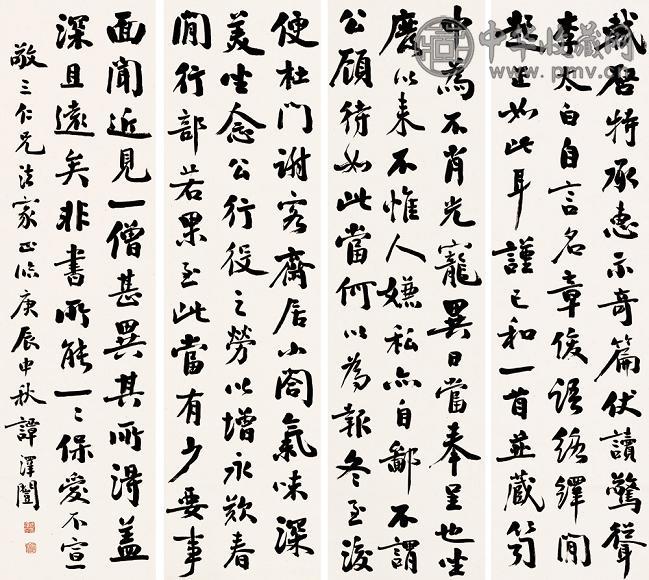 中华收藏网
www.pmv.cn
軾啓特承惠示奇篇伏讀驚聳
李太白自言名章俊語絡繹間
起正如此耳謹已和一首並藏笥
中為不肖光寵異日當奉呈也坐
廢以來不惟人嫌私亦自鄙不謂
公顧待如此當何以為報冬至後
便杜門謝客齋居小閣氣味深
美坐念公行役之勞以增永歎春
間行部若果至此當有少要事
面聞近見一僧甚異其所得蓋
深且遠矣非書所能一〻保愛不宣
敬三仁兄法家正臨庚辰中秋譚澤闓